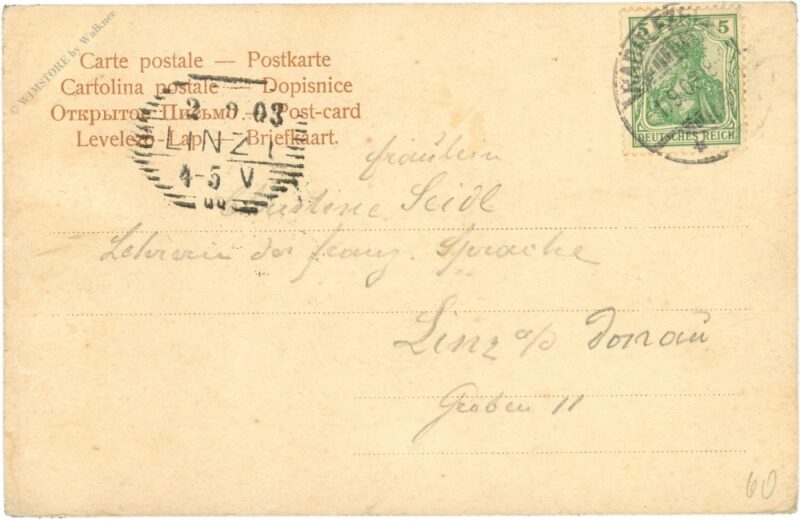 Carte postale — Postkarte
Cartolina postale — Dopisnice
Открытое Письмо — Post-card
Levelező-Lap — Briefkaart.
© W1MSTORE by Walkner
2 9 03
LINZ 1
4-5 V
5 5
DEUTSCHES REICH
Fräulein
Christine Seidl
Lehrerin der franz. Sprache
Linz a/D Donau
Graben 11
60